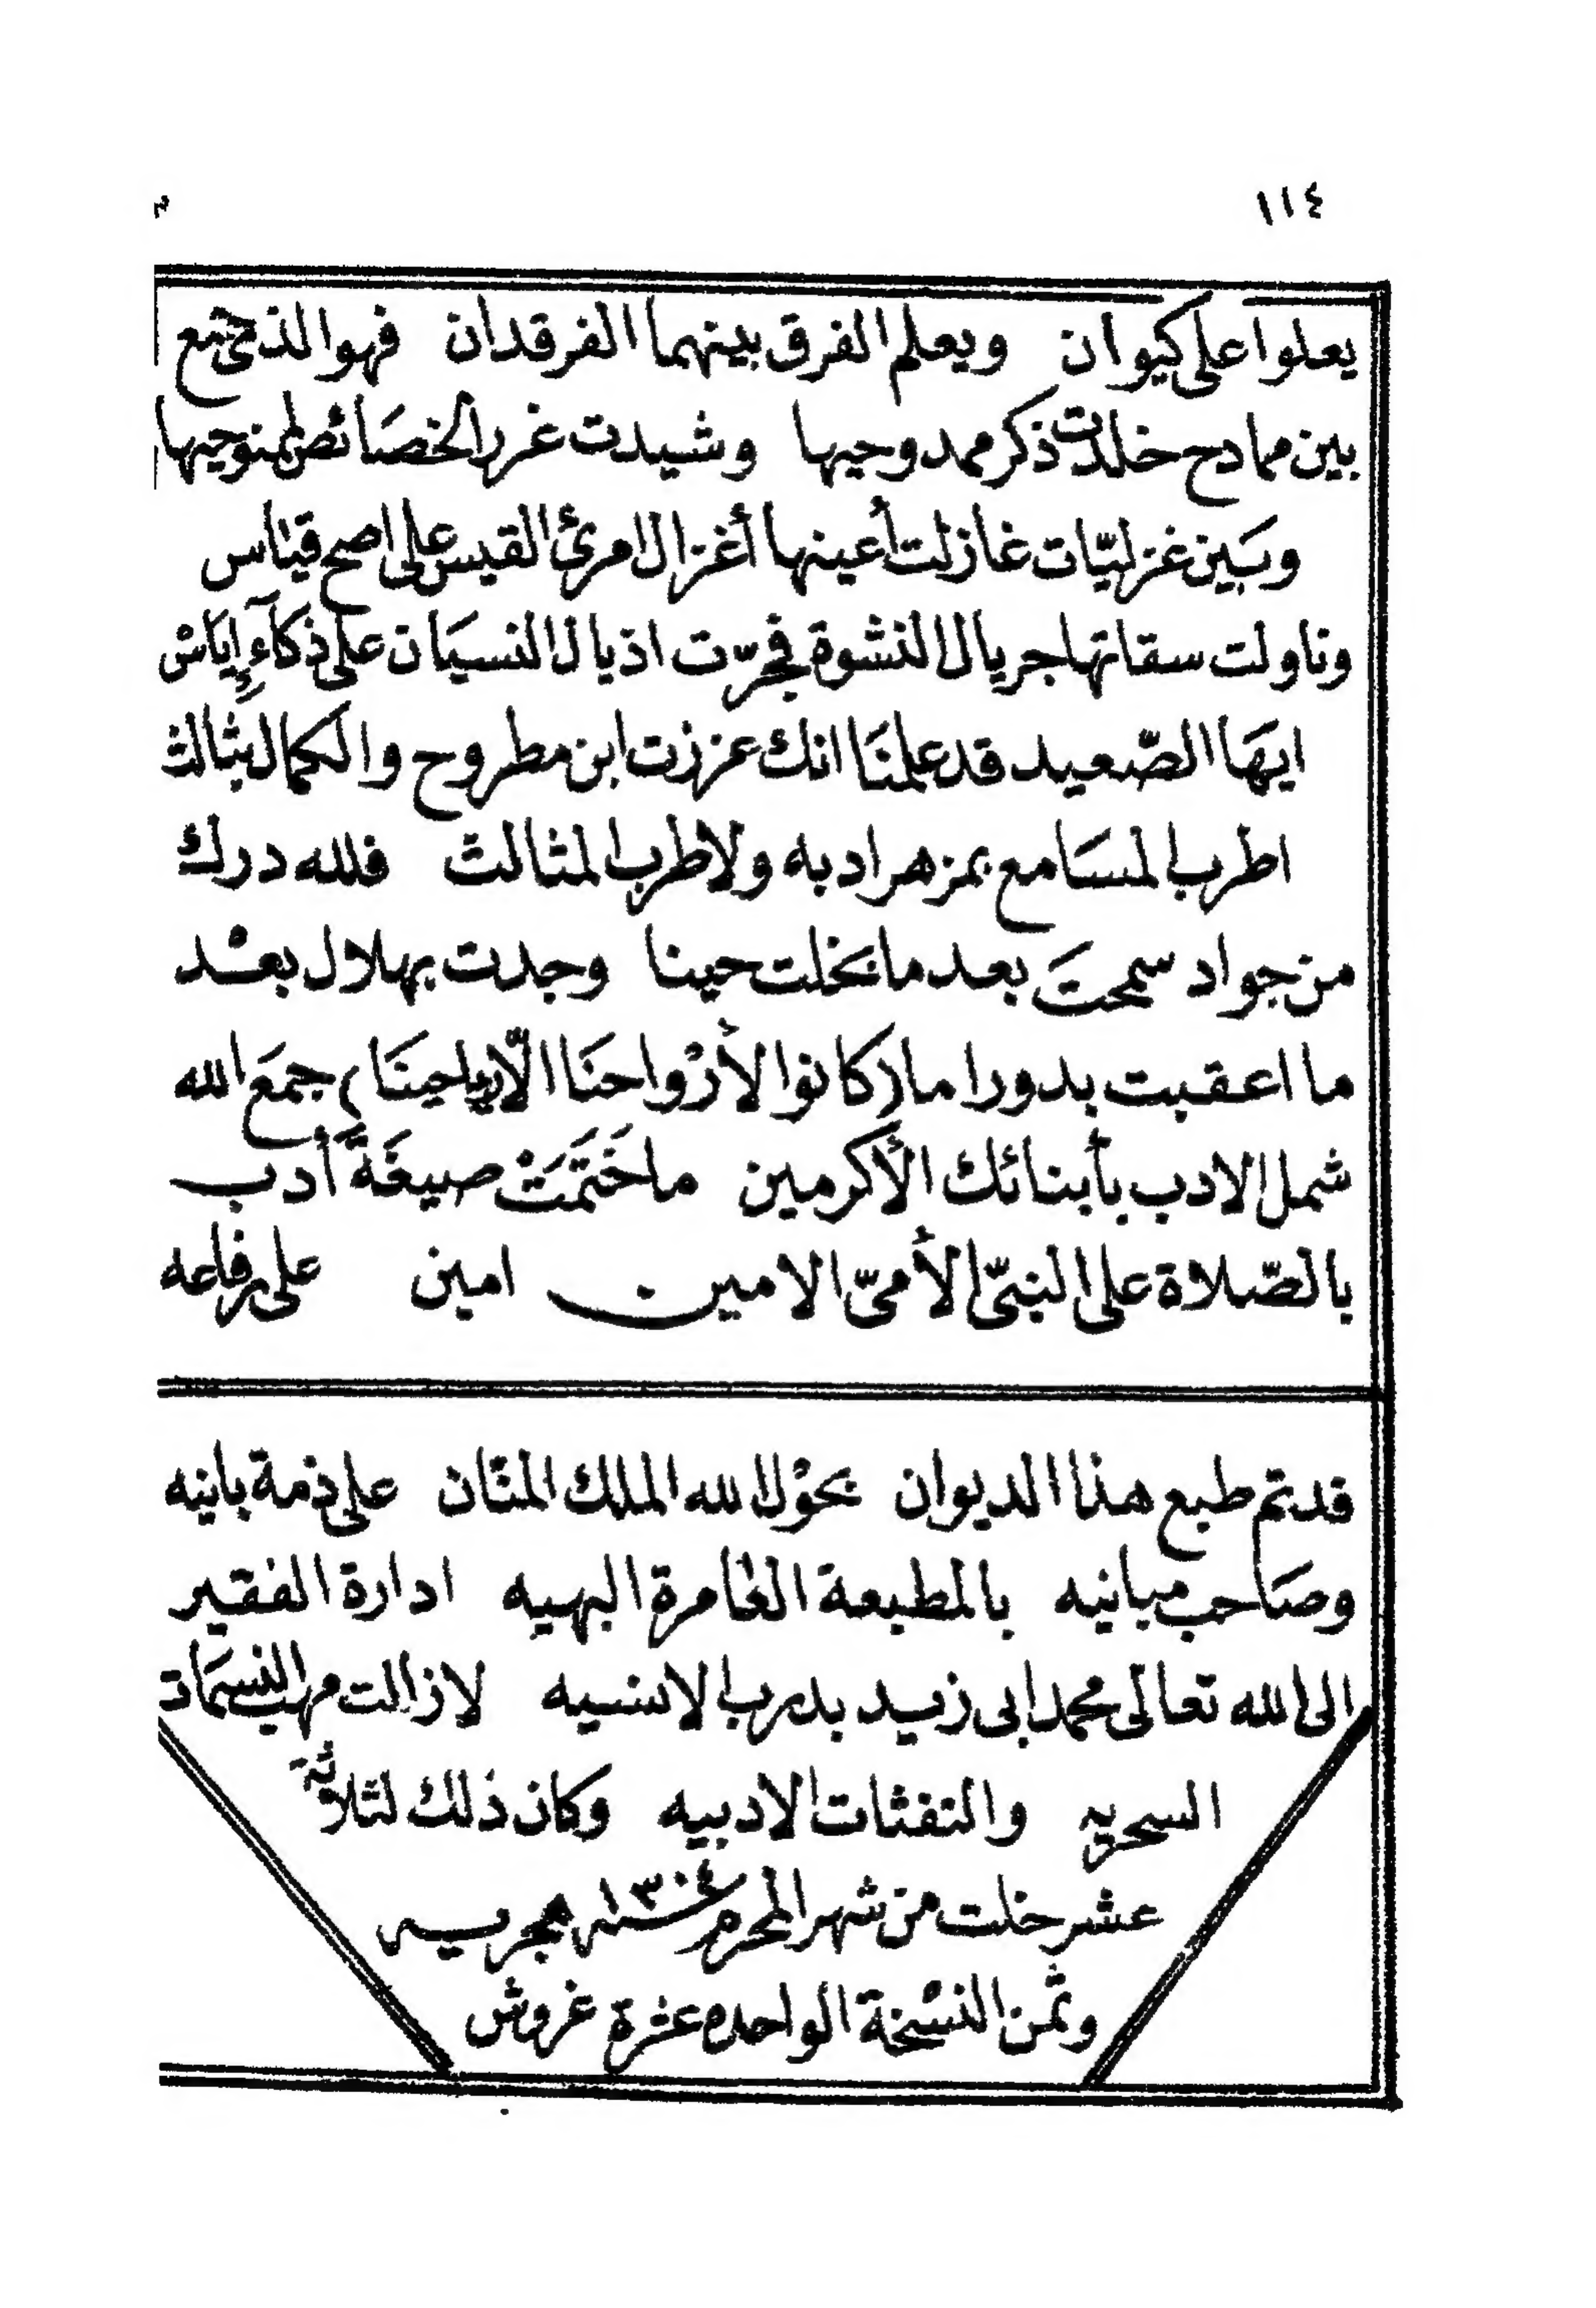 ١١٤
يعلوا على كيوان ويعلم الفرق بينهما الفرقدان فهو الذى جمع
بين ممادح خلدت ذكر ممدوحيها وشيدت غرر الخصائص لممنوحيها
وبَين غزليّات غازلت أعينها أغزال امرئ القيس على اصح قيَاس
وناولت سقاتها جريال النشوة فجرّت اذيال النسيَان على ذكآءِ إِيَاسْ
ايهَا الصّعيد قد علمنَا انك عززت ابن مطروح والكمال بثالث
اطرب المسَامع بمزهر ادبه ولا طرب المثالث فلله درك
من جواد سمحتَ بعد ما بخلت حينا وجدت بهلال بعْد
ما اعقبت بدورا ما (كانوا لأرْواحنَا الّا رياحينَا) جمَع الله
شمل الادب بأبنائك الأكرمين ما خَتَمَتْ صيغَةً أدب
بالصّلاة على النبىّ الأمىّ الامين امين على رفاعه
قد تم طبع هذا الديوان بحوْل الله الملك المنّان على ذمة بانيه
وصَاحب مبانيه بالمطبعة العامرة البهيه ادارة الفقير
الى الله تعالى محمد ابى زيد بدرب الانسيه لا زالت مهب النسمَات
السحريه والنفثات الادبيه وكان ذلك لثلاثة
عشر خلت من شهر المحرم سنة ١٣٠٤ هجريه
وثمن النسْخة الواحده عشرة غروش